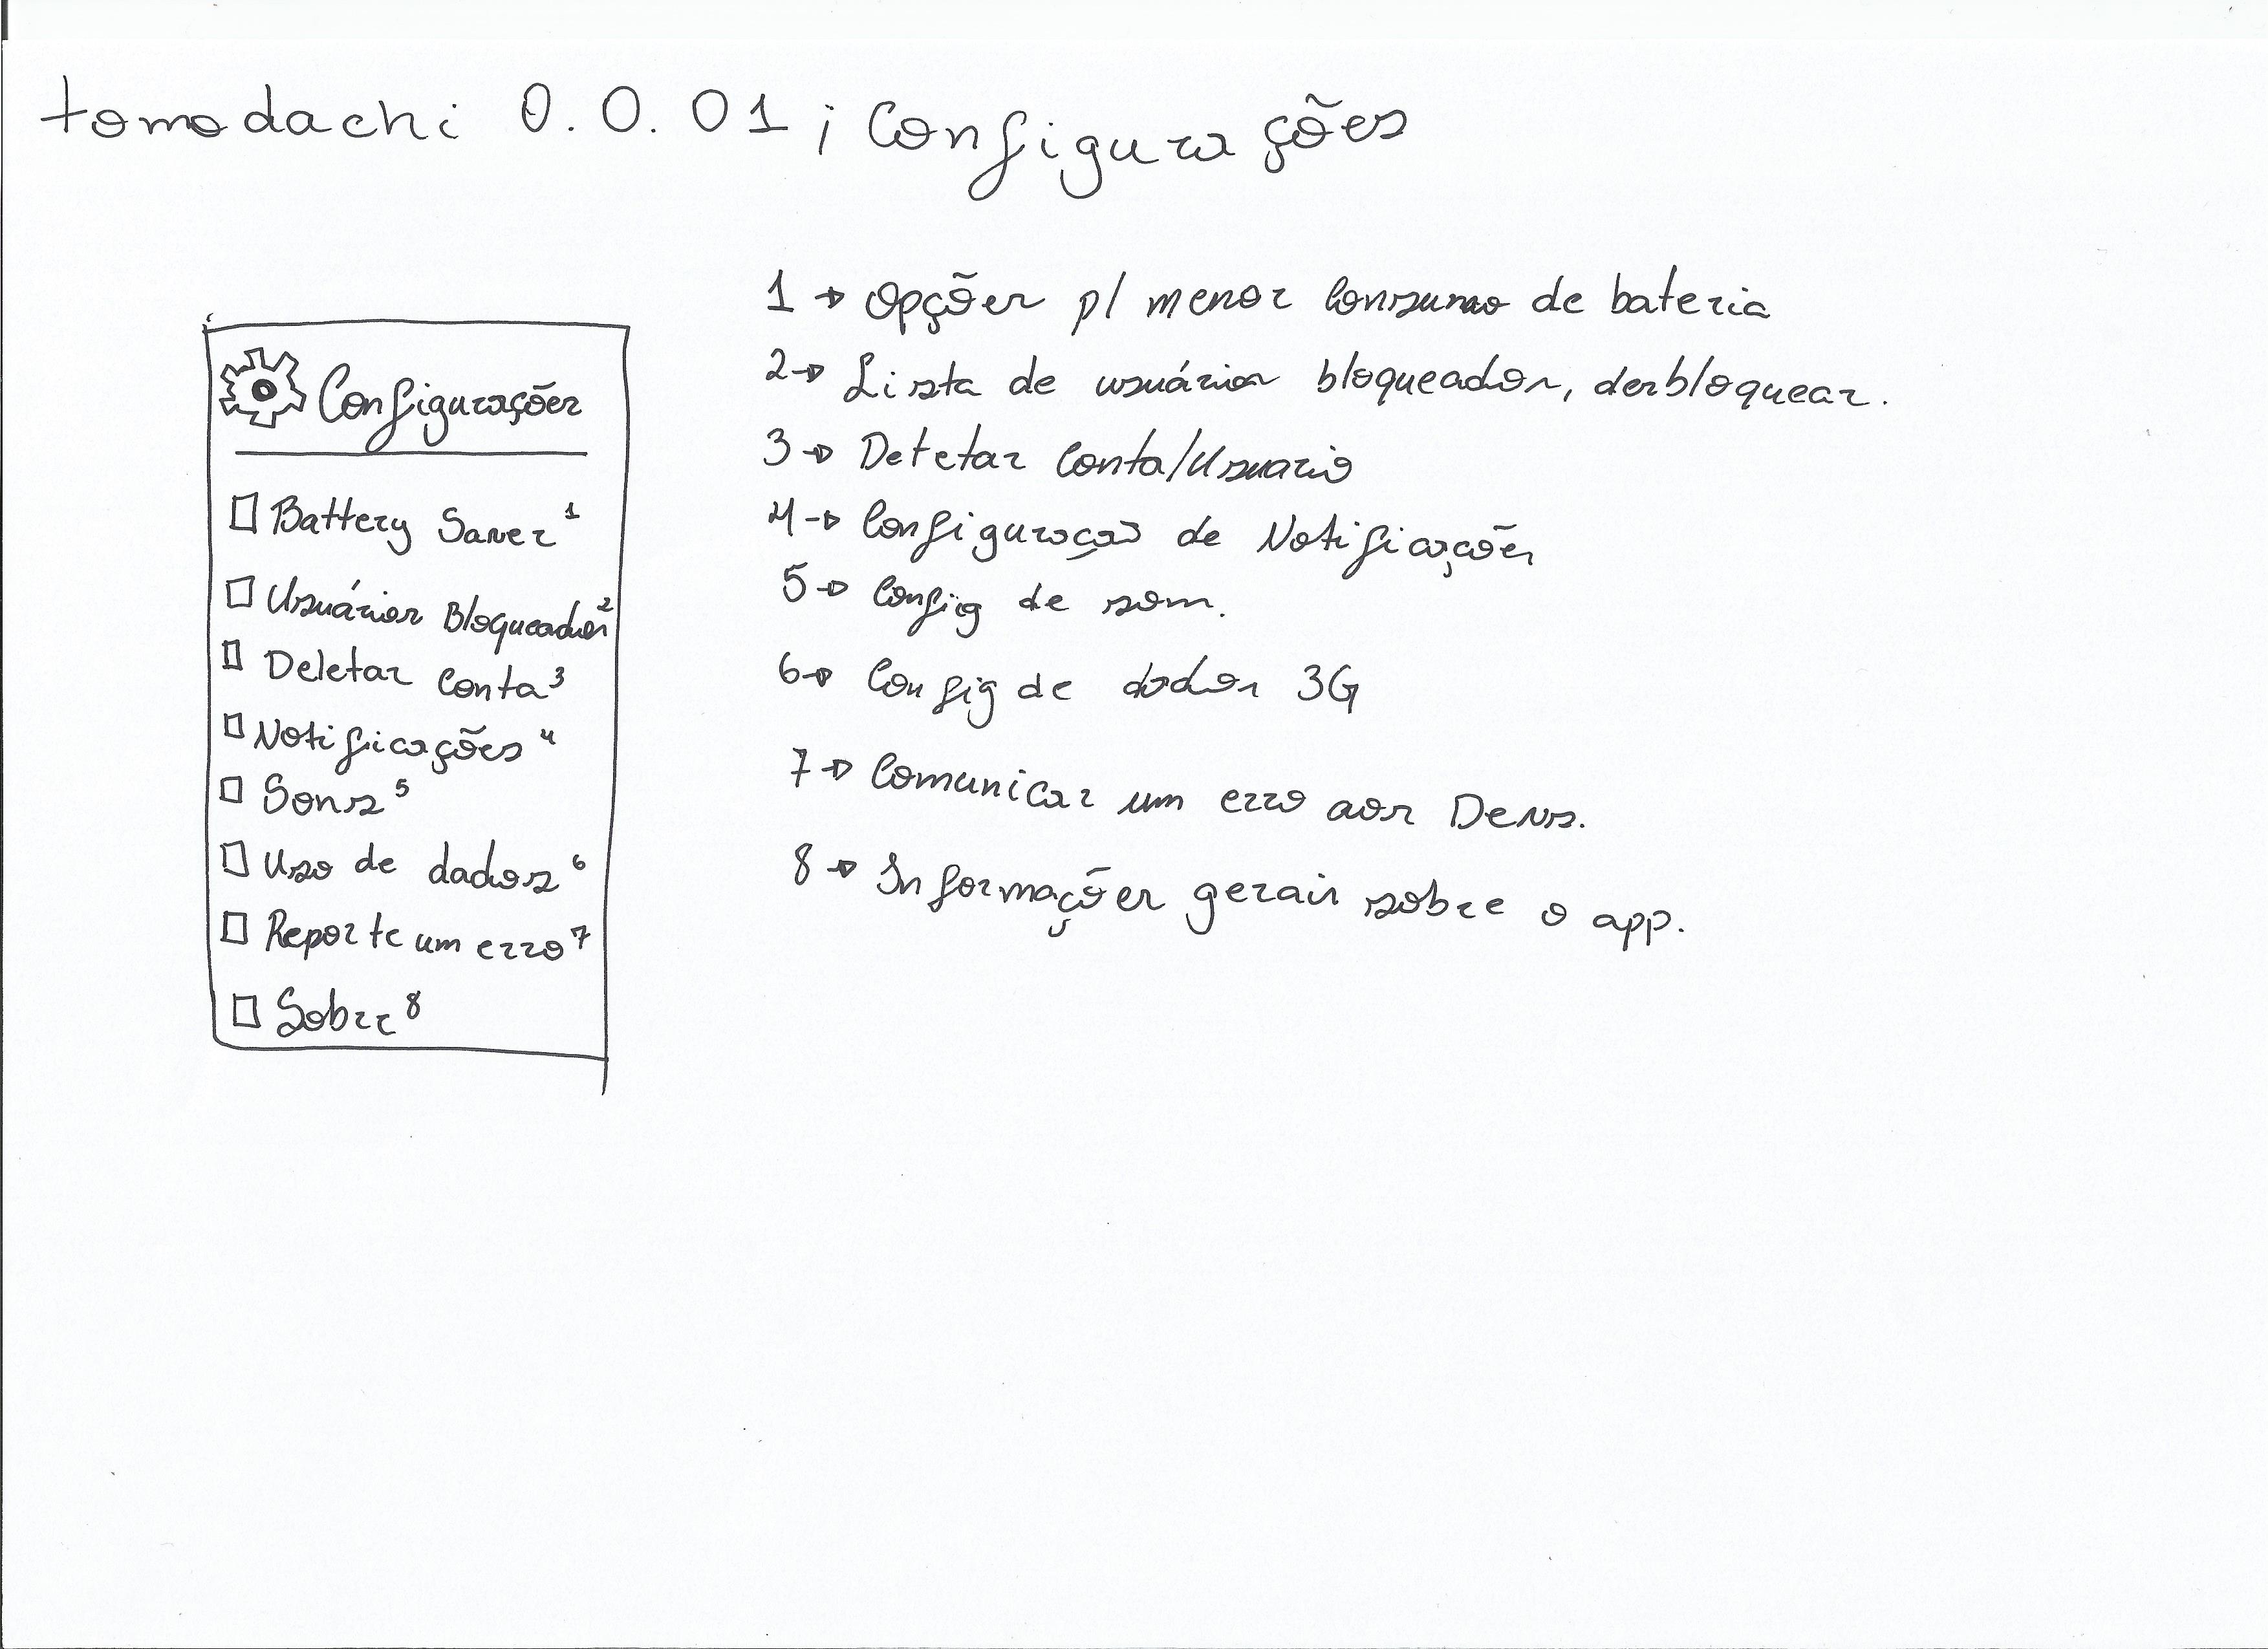 tomodachi 0.0.01; Configurações
Configurações
Battery Saver 1
Usuários Bloqueados 2
Deletar Conta 3
Notificações 4
Sons 5
Uso de dados 6
Reporte um erro 7
Sobre 8
1 → Opções p/ menor consumo de bateria
2 → Lista de usuários bloqueados, desbloquear.
3 → Deletar Conta/Usuario
4 → Configuração de Notificações
5 → Config de som.
6 → Config de dados 3G
7 → Comunicar um erro aos Devs.
8 → Informações gerais sobre o app.